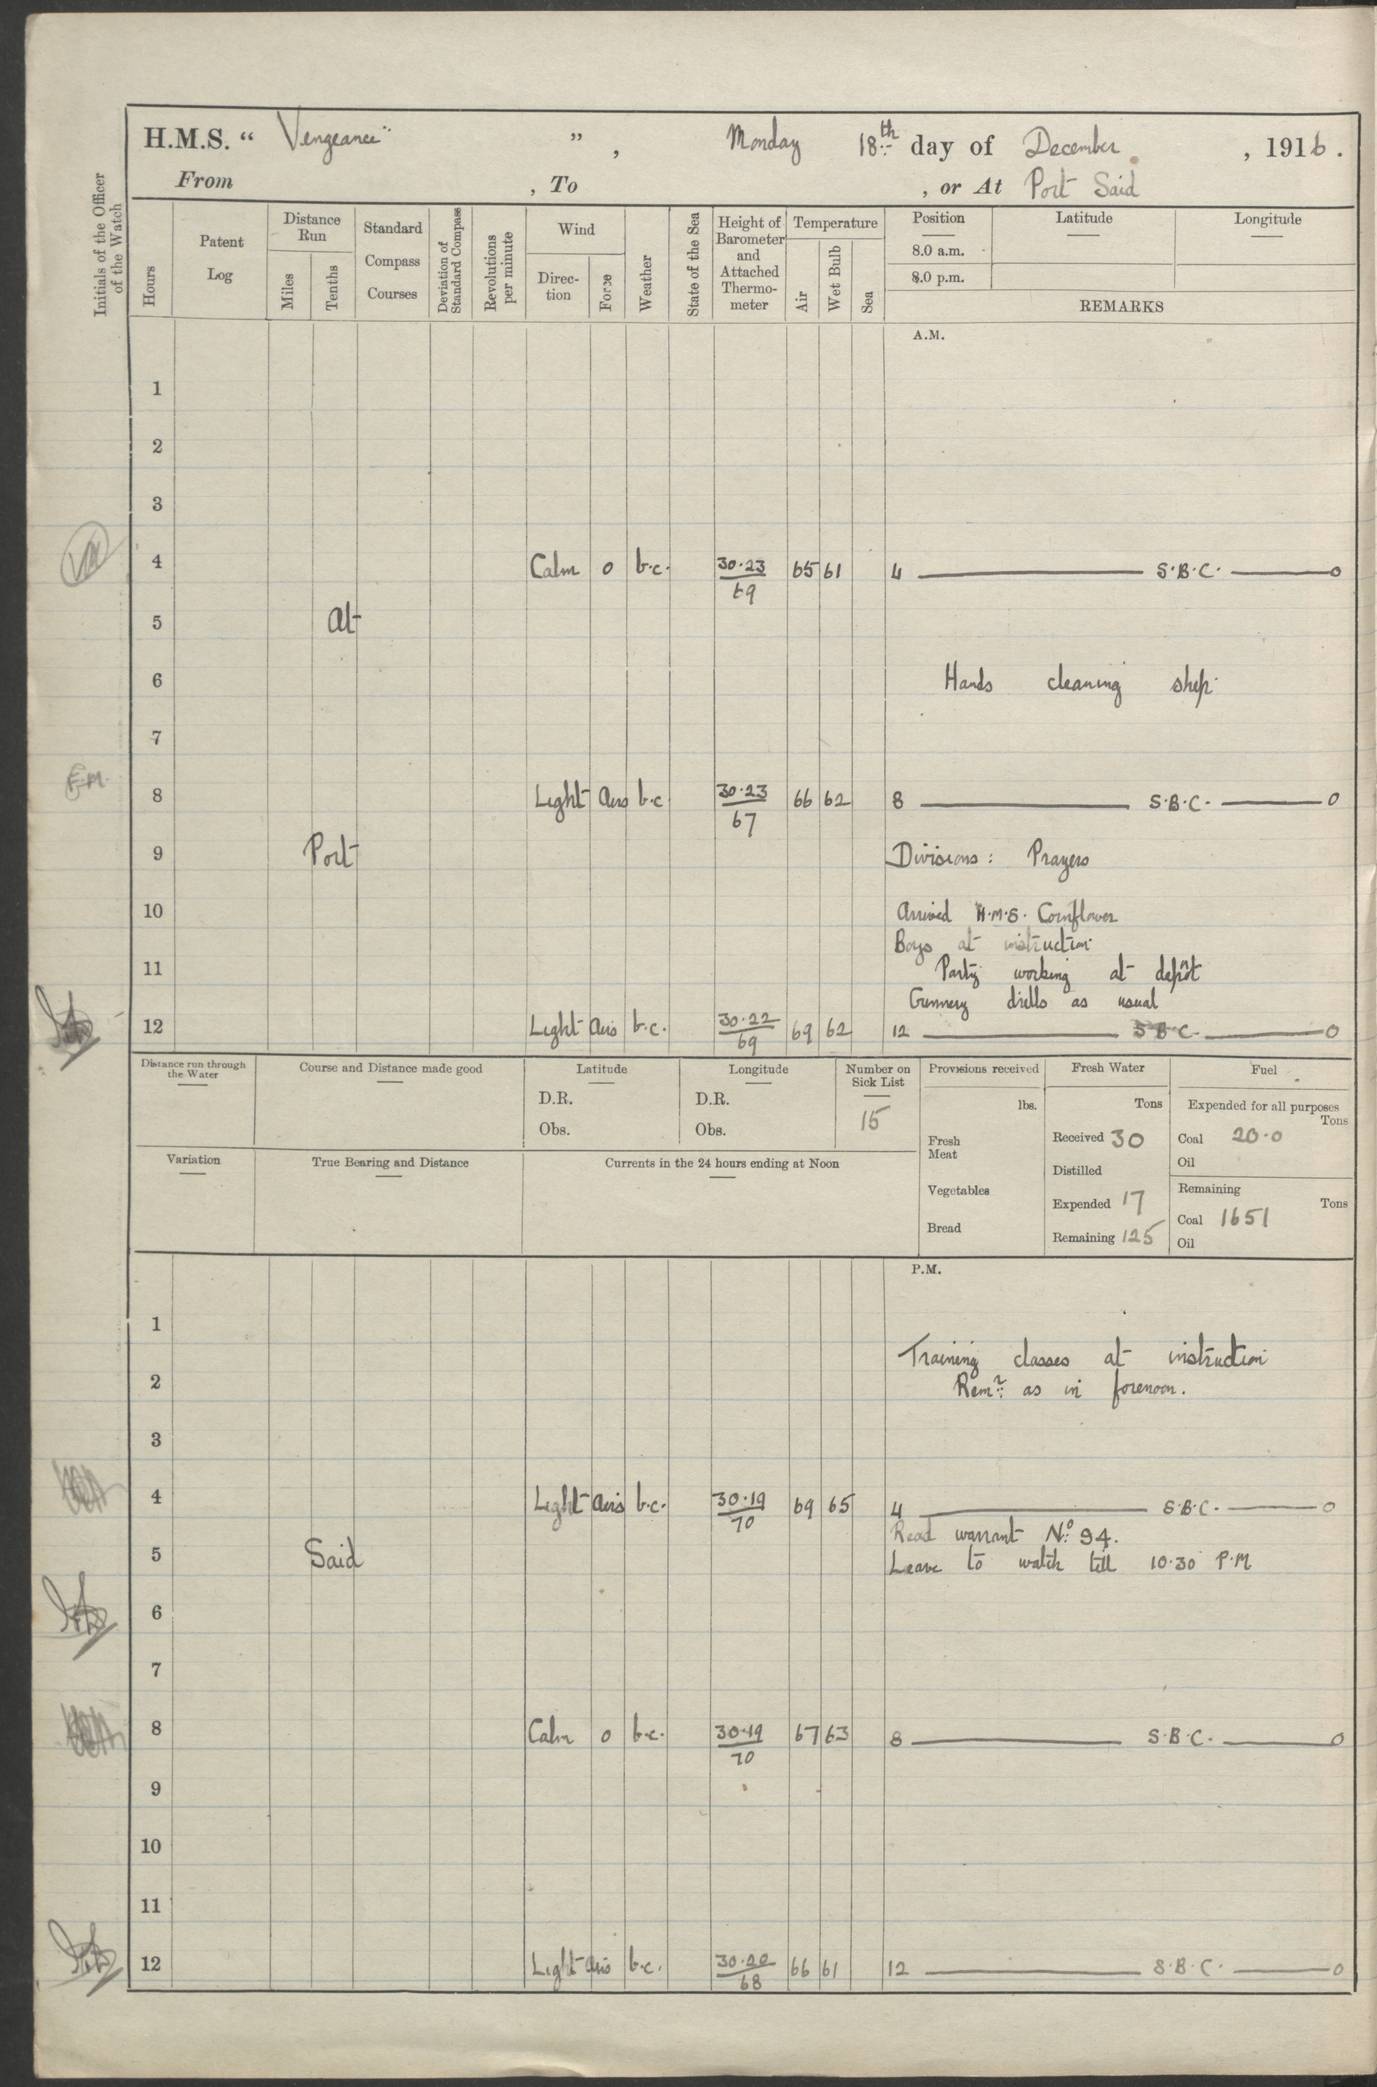 H.M.S. “ Vengeance" ” , Monday 18th day of December , 1916 .
From , To , or At Port Said
Initials of the Officer of the Watch
Hours
Patent Log
Distance Run
Miles
Tenths
Standard Compass Courses
Deviation of Standard Compass
Revolutions per minute
Wind
Direc-tion
Force
Weather
State of the Sea
Height of Barometer and Attached Thermo-meter
Temperature
Air
Wet Bulb
Sea
Position Latitude Longitude
8.0 a.m.
8.0 p.m.
REMARKS
A.M.
1
2
3
4 Calm 0 b.c. 30.23 65 61 4 S.B.C. 0
69
5 At
6 Hands cleaning ship
7
F.M.
8 Light Airs b.c 30.23 66 62 8 S.B.C. 0
67
9 Port Divisions: Prayers
10 Arrived H.M.S. Cornflower
Boys at instruction
11 Party working at depôt
Gunnery drills as usual
12 Light Airs b.c. 30.22 69 62 12 S.B.C. 0
69
Distance run through the Water
Course and Distance made good
Latitude
D.R.
Obs.
Longitude
D.R.
Obs.
Number on Sick List
15
Provisions received
lbs.
Fresh Meat
Vegetables
Bread
Fresh Water
Tons
Received 30
Distilled
Expended 17
Remaining 125
Fuel
Expended for all purposes
Tons
Coal 20.0
Oil
Remaining
Tons
Coal 1651
Oil
Variation
True Bearing and Distance
Currents in the 24 hours ending at Noon
P.M.
1
Training classes at instruction
2 Remr: as in forenoon.
3
4 Light Airs b.c. 30.19 69 65 4 S.B.C. 0
70
Read warrant No: 94.
5 Said Leave to watch till 10.30 P.M
6
7
8 Calm 0 b.c. 30.19 67 63 8 S.B.C. 0
70
9
10
11
12 Light Airs b.c. 30.20 66 61 12 S.B.C. 0
68